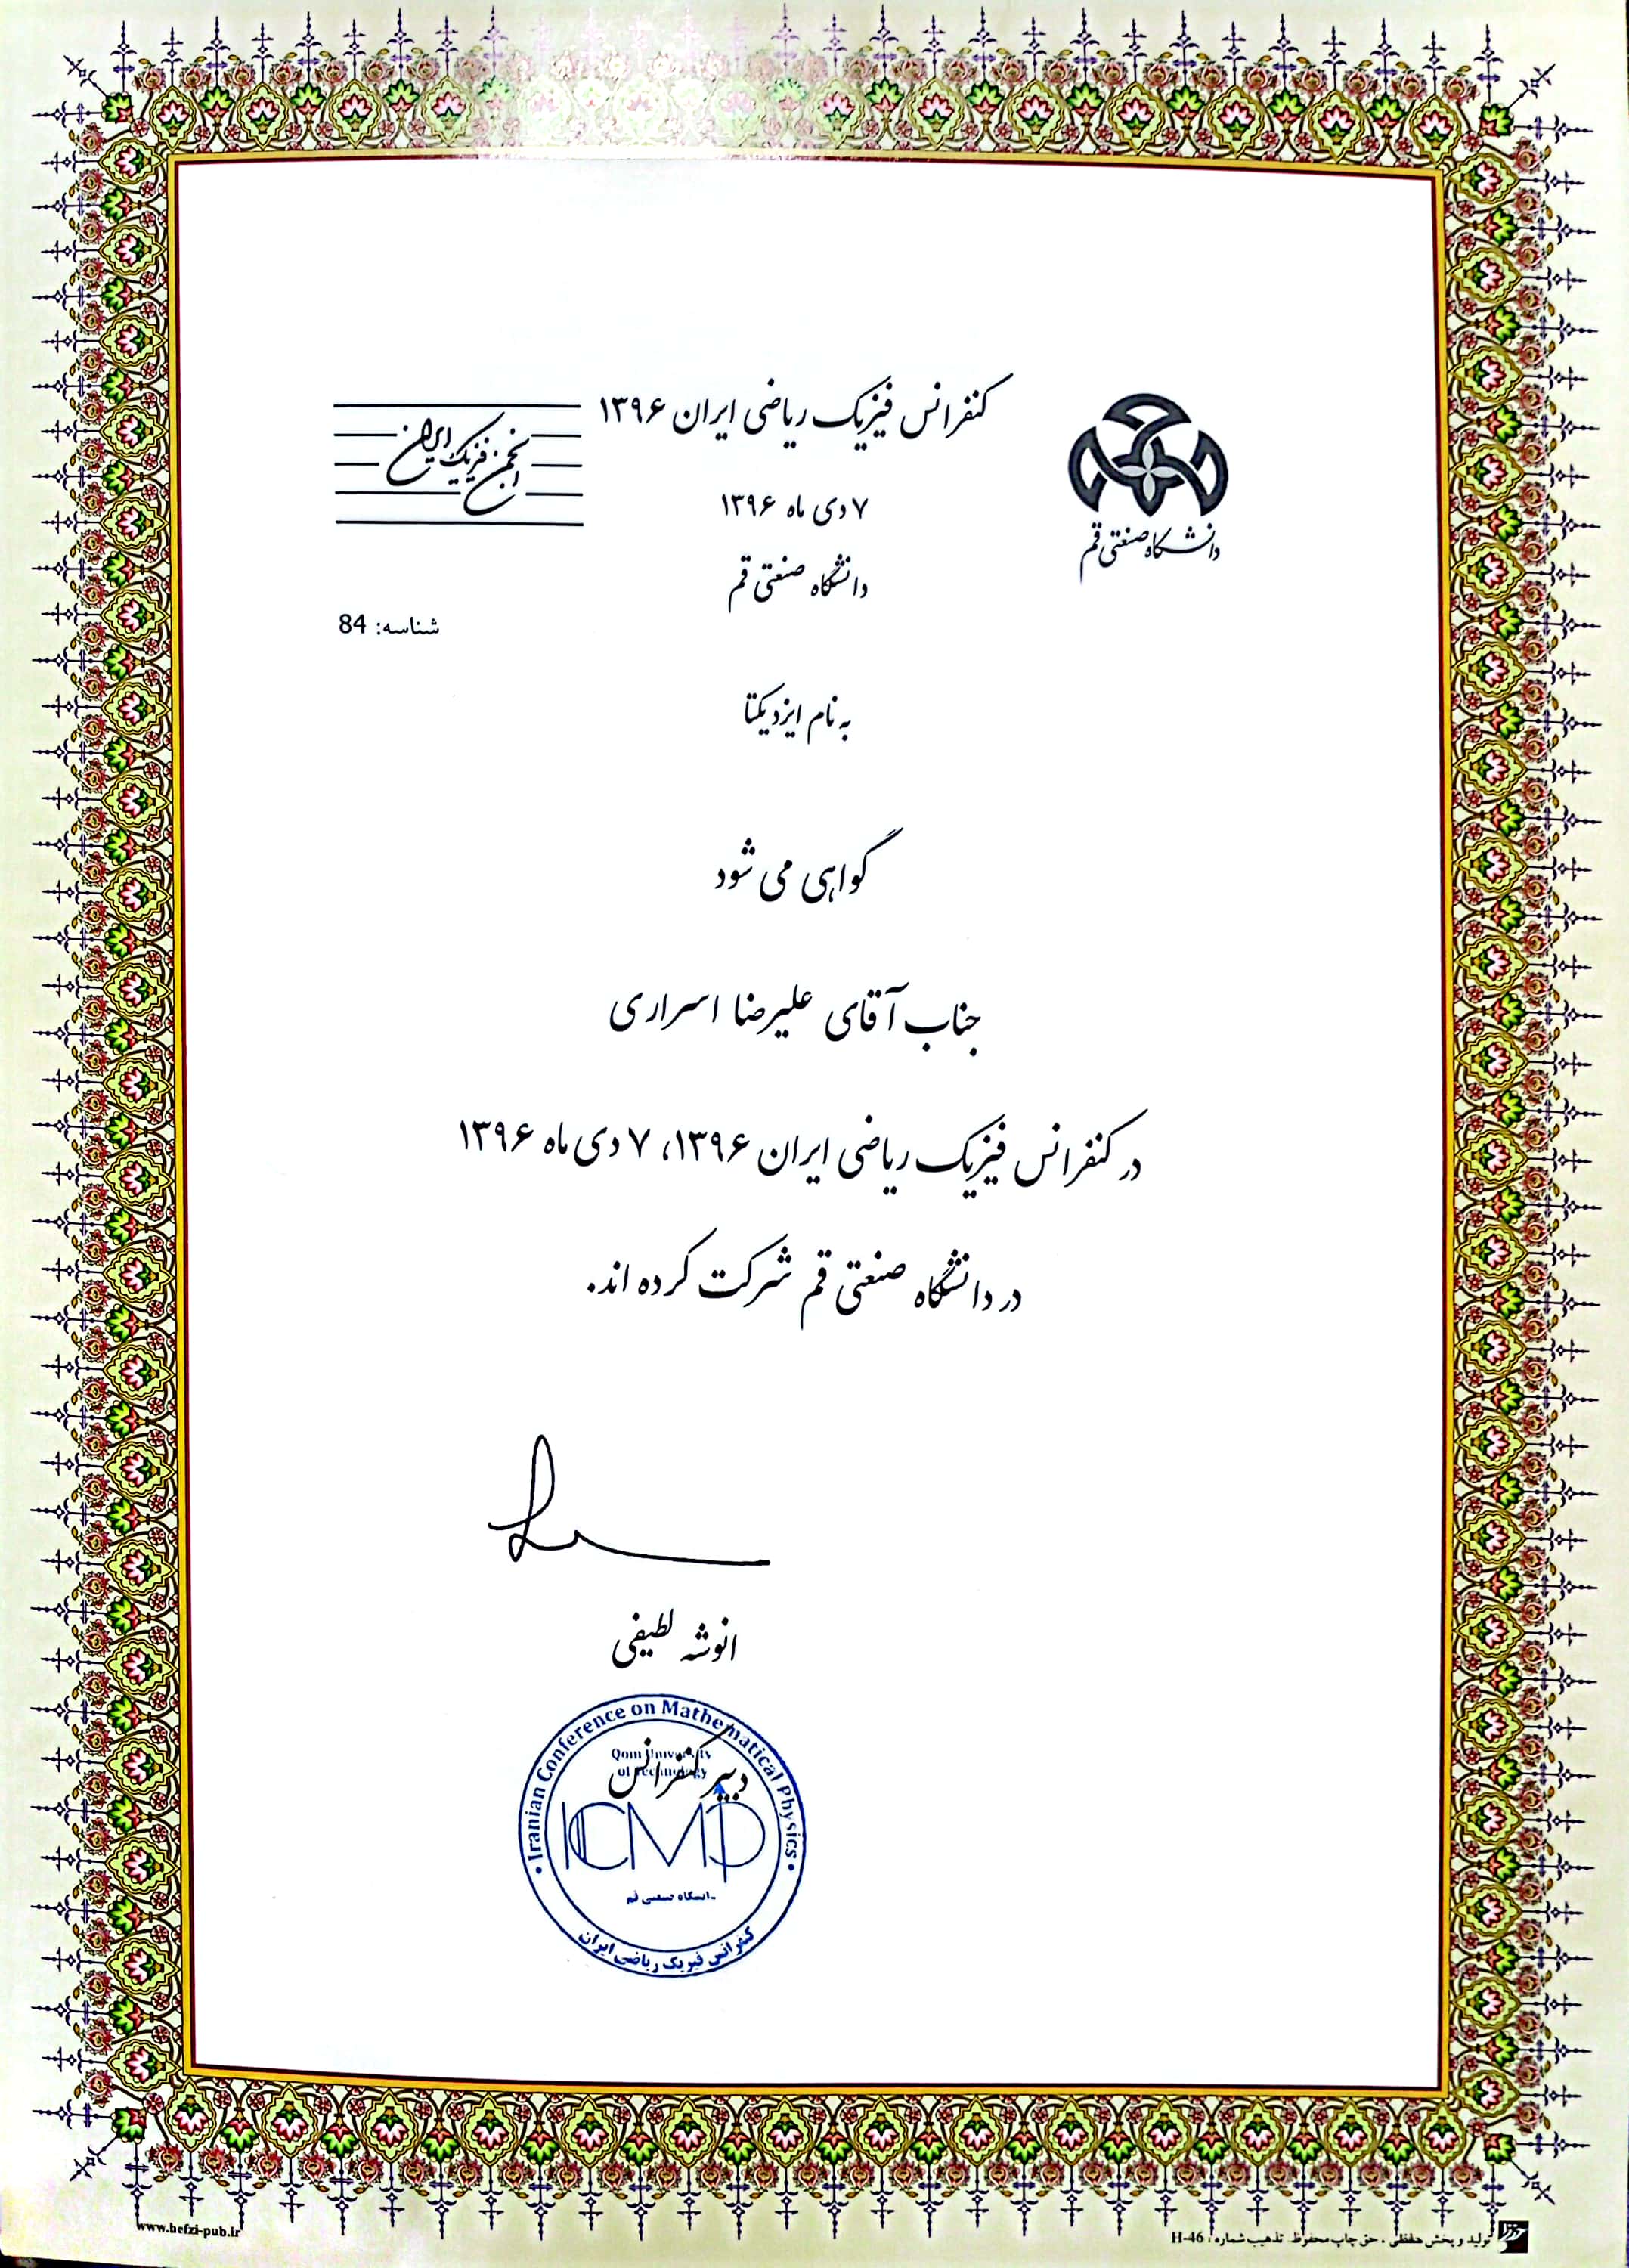 کنفرانس فیزیک ریاضی ایران ۱۳۹۶
انجمن فیزیک ایران
دانشگاه صنعتی قم
۷ دی ماه ۱۳۹۶
دانشگاه صنعتی قم
شناسه: 84
به نام ایزد یکتا
گواهی می شود
جناب آقای علیرضا اسراری
در کنفرانس فیزیک ریاضی ایران ۱۳۹۶، ۷ دی ماه ۱۳۹۶
در دانشگاه صنعتی قم شرکت کرده اند.
انوشه لطیفی
دبیر کنفرانس
• Iranian Conference on Mathematical Physics •
Qom University
of Technology
ICMP
دانشگاه صنعتی قم
کنفرانس فیزیک ریاضی ایران
www.hefzi-pub.ir
تولید و پخش حفظی . حق چاپ محفوظ تذهیب شماره : H-46